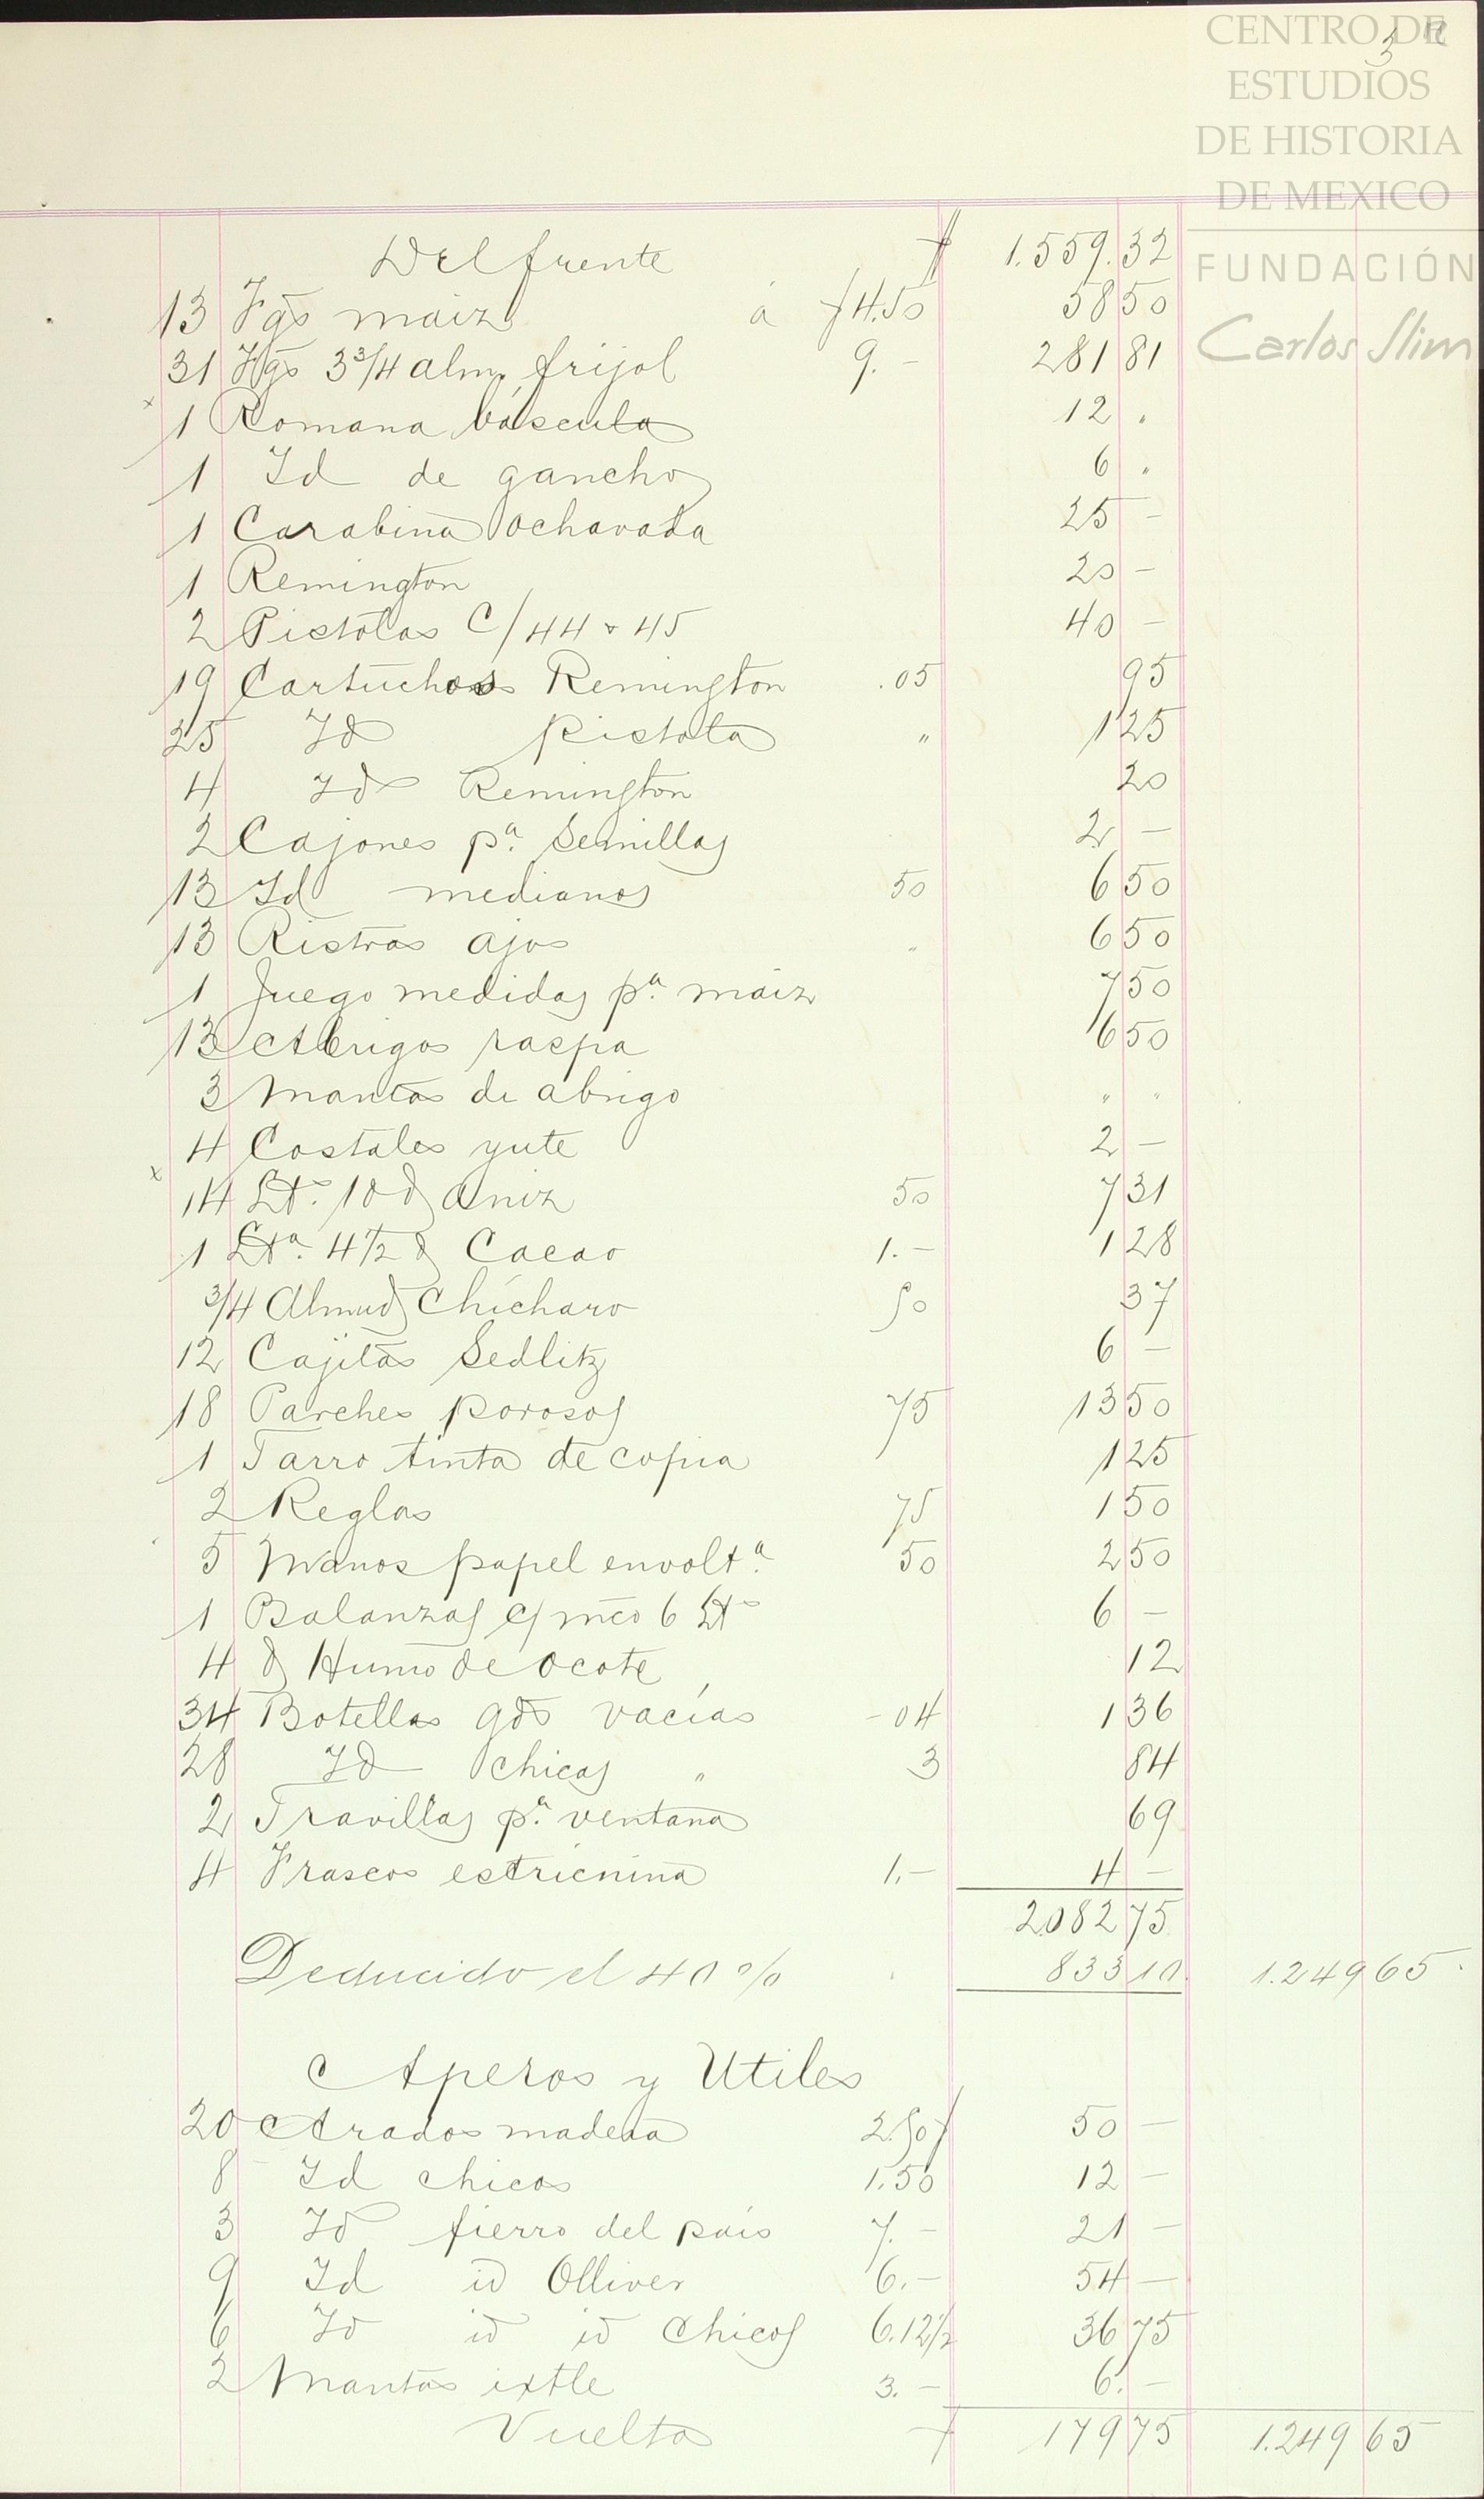 CENTRO DE
ESTUDIOS
DE HISTORIA
DE MEXICO
FUNDACIÓN
Carlos Slim
3
Del frente $ 1.559.32
13 Fgs maiz á $4.50 58 50
31 Hgs 3 3/4 alm. frijol 9.- 281 81
1 Romana báscula 12 "
1 Id de gancho 6 "
1 Carabina Ochavada 25 -
1 Remington 20 -
2 Pistolas C/44 & 45 40 -
19 Cartuchos Remington .05 95
25 Id Pistola " 1 25
4 Id Remington 20
2 Cajones pa. Semillas 2 -
13 Id medianos 50 6 50
13 Ristras ajos " 6 50
1 Juego medidas pa. maiz 7 50
13 Abrigos raspa 6 50
3 Mantas de abrigo " "
4 Costales yute 2 -
14 Lts. 10 d Aniz 50 7 31
1 Lta. 4 1/2 d Cacao 1.- 1 28
3/4 Almud Chícharo 50 37
12 Cajitas Sedlitz 6 -
18 Parches porosos 75 13 50
1 Tarro tinta de copia 1 25
2 Reglas 75 1 50
5 Manos papel envolta. 50 2 50
1 Balanzas c/ mco 6 Lts 6 -
4 d Humo de Ocote 12
34 Botellas gds vacías -04 1 36
28 Id Chicas " 3 84
2 Travillas pa. ventana 69
4 Frascos estricnina 1.- 4 -
2.082 75
Deducido el 40% 833 10 1.249 65
Aperos y Utiles
20 Arados madera 2.50 $ 50 -
8 Id chicos 1.50 12 -
3 Id fierro del país 7.- 21 -
9 Id id Olliver 6.- 54 -
6 Id id id Chicos 6.12 1/2 36 75
2 Mantas ixtle 3.- 6. -
Vuelta $ 179 75 1.249 65